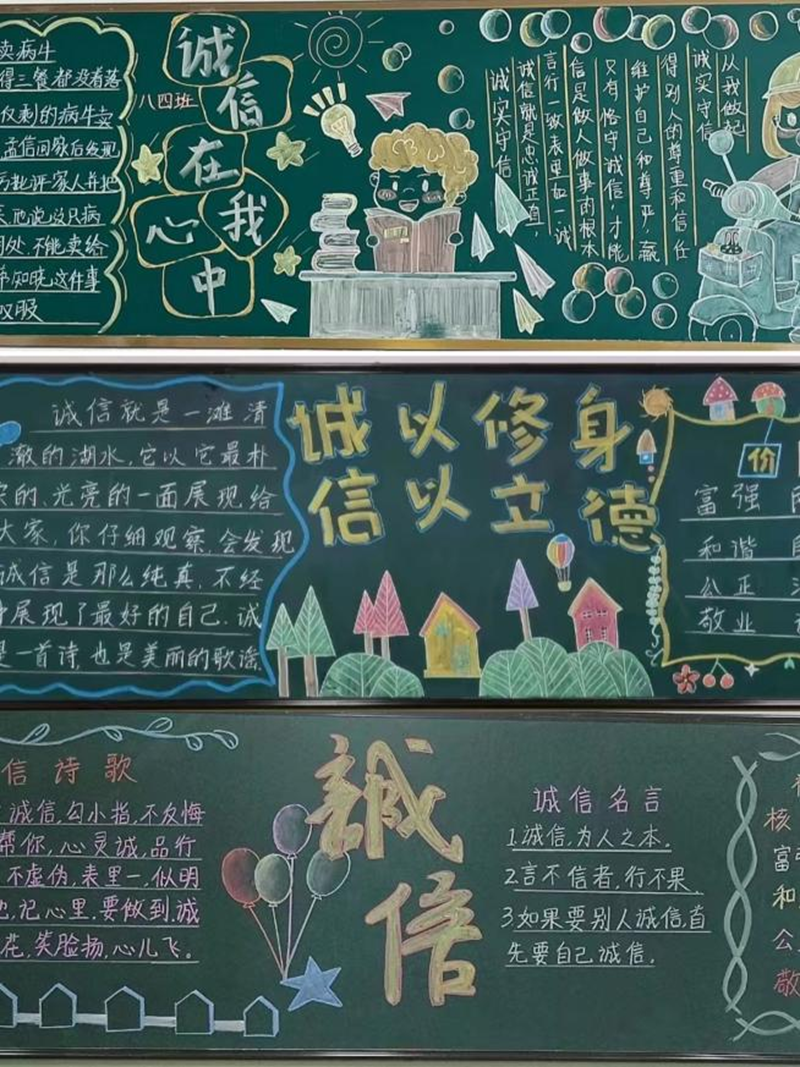 卖病牛
得三餐都没着落
仅剩的病牛卖
孟信回家后发现
厉批评家人并把
他说这只病
用处,不能卖给
知晓这件事
叹服
八四班
诚信在我心中
诚实守信
诚信就是忠诚正直,
言行一致表里如一,诚
信是做人做事的根本
又有恪守诚信,才能
维护自己和尊严,赢
得别人的尊重和信任
诚实守信
从我做起
诚信就是一滩清
澈的湖水,它以它最朴
实的、光亮的一面展现给
大家,你仔细观察,会发现
诚信是那么纯真,不经
展现了最好的自己.诚
是一首诗,也是美丽的歌谣.
诚以修身
信以立德
价
富强
和谐
公正
敬业
信诗歌
诚信,勾小指,不反悔
帮你,心灵诚,品行
不虚伪,表里一,似明
记心里,要做到,诚
花,笑脸扬,心儿飞。
誠信
诚信名言
1.诚信,为人之本.
2.言不信者,行不果.
3如果要别人诚信,首
先要自己诚信.
核
富强
和
公
敬